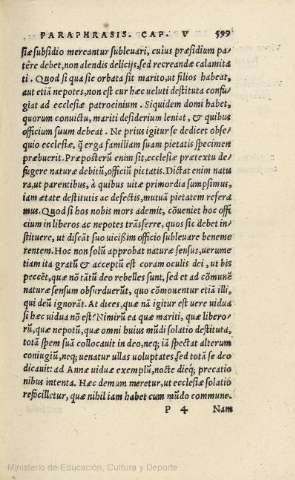 PARAPHRASIS. CAP. V 599
siæ subsidio mereantur subleuari, cuius præsidium pa/
tēre debet, non alendis delicijs, sed recreandæ calamita
ti. Quod si qua sic orbata sit marito, ut filios habeat,
aut etiā nepotes, non est cur hæc ueluti destituta confu/
giat ad ecclesiæ patrocinium. Siquidem domi habet,
quorum conuictu, mariti desiderium leniat, & quibus
officium suum debeat. Ne prius igitur se dedicet obse/
quio ecclesiæ, q̃ erga familiam suam pietatis specimen
præbuerit. Præposterū enim sit, ecclesiæ prætextu de/
fugere naturæ debitū, officiū pietatis. Dictat enim natu
ra, ut parentibus, à quibus uitæ primordia sumpsimus,
iam ætate destitutis ac defectis, mutuā pietatem refera
mus. Quod si hos nobis mors ademit, cōueniet hoc offi
cium in liberos ac nepotes trāsferre, quos sic debet in/
stituere, ut discāt suo uicissim officio subleuare beneme
rentem. Hoc non solū approbat naturæ sensus, uerume
tiam ita gratū & acceptū est coram oculis dei, ut bis
peccēt, quæ nō tātū deo rebelles sunt, sed et ad cōmunē
naturæ sensum obsurduerūt, quo cōmouentur etiā illi,
qui deū ignorāt. At dices, quæ nā igitur est uere uidua
si hæc uidua nō est? Nimirū ea quæ mariti, quæ libero/
rū, quæ nepotū, quæ omni huius mūdi solatio destituta,
totā spem suā collocauit in deo, neq; iā spectat alterum
coniugiū, neq; uenatur ullas uoluptates, sed totā se deo
dicauit: ad Annæ uiduæ exemplū, nocte dieq; precatio
nibus intenta. Hæc demam meretur, ut ecclesiæ solatio
refocilletur, quæ nihil iam habet cum mūdo commune.
P 4 Nam
Ministerio de Educación, Cultura y Deporte